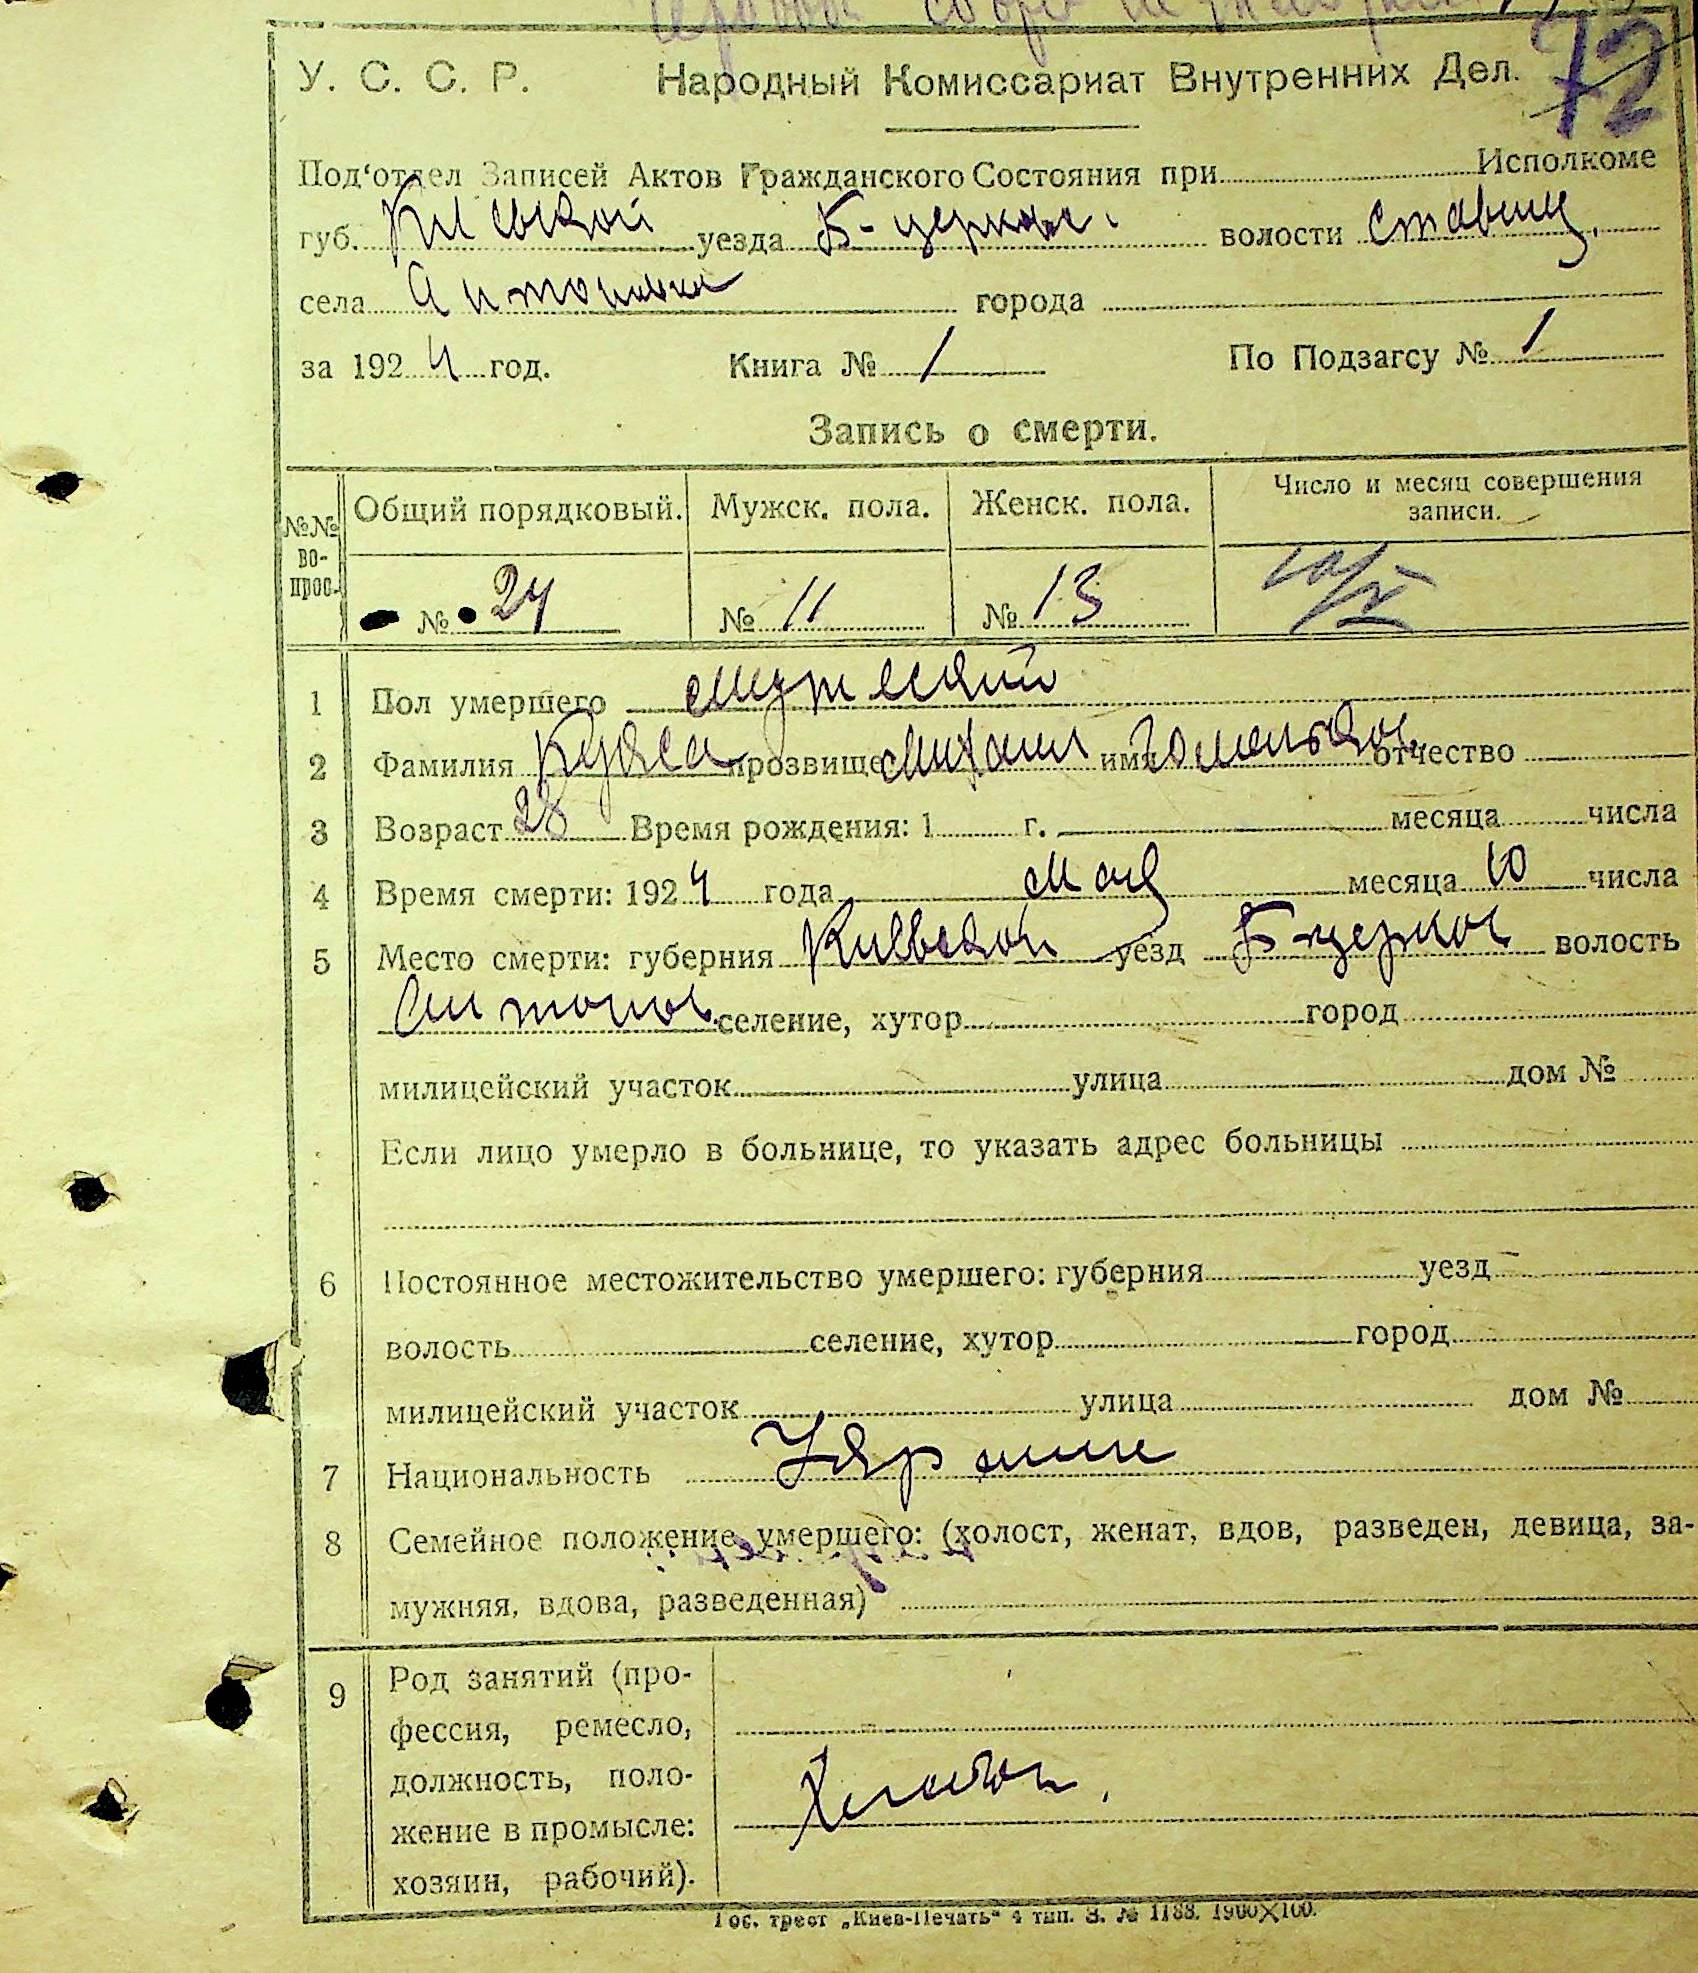 72
У. С. С. Р. Народный Комиссариат Внутренних Дел.
Под‘отдел Записей Актов Гражданского Состояния при Исполкоме
губ. Киевской уезда Б-церков. волости Ставищ.
села Антоновка города
за 1924 год. Книга № 1 По Подзагсу № 1
Запись о смерти.
№№ во-прос. Общий порядковый. Мужск. пола. Женск. пола. Число и месяц совершения записи.
№ 24 № 11 № 13 10/V
1 Пол умершего мужеский
2 Фамилия прозвище Михаил имя отчество
3 Возраст 28 Время рождения: 1 г. месяца числа
4 Время смерти: 1924 года мая месяца 10 числа
5 Место смерти: губерния Киевской уезд Б-церков волость
Антонов. селение, хутор город
милицейский участок улица дом №
Если лицо умерло в больнице, то указать адрес больницы
6 Постоянное местожительство умершего: губерния уезд
волость селение, хутор город
милицейский участок улица дом №
7 Национальность
8 Семейное положение умершего: (холост, женат, вдов, разведен, девица, за-
мужняя, вдова, разведенная)
9 Род занятий (про-
фессия, ремесло,
должность, поло-
жение в промысле:
хозяин, рабочий).
Гос. трест „Киев-Печать“ 4 тип. З. № 1188. 1900X100.